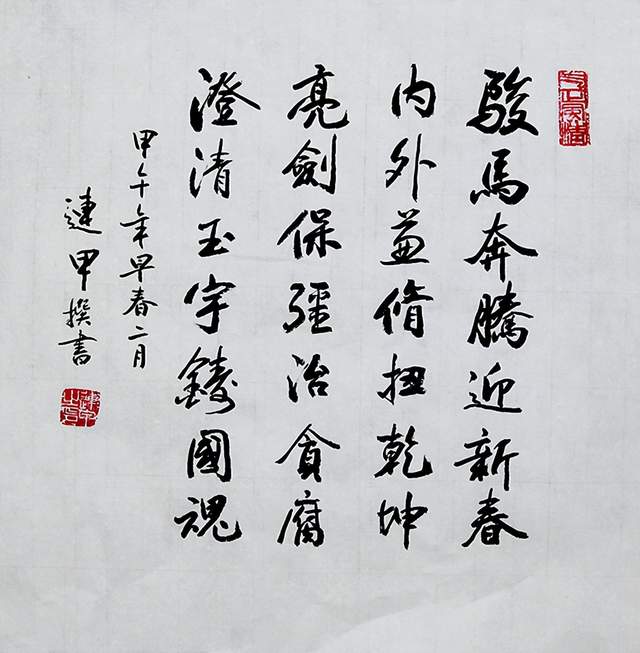 駿馬奔騰迎新春
內外兼脩扭乾坤
亮劍保疆治貪腐
澄清玉宇鑄國魂
甲午年早春二月
連甲撰書